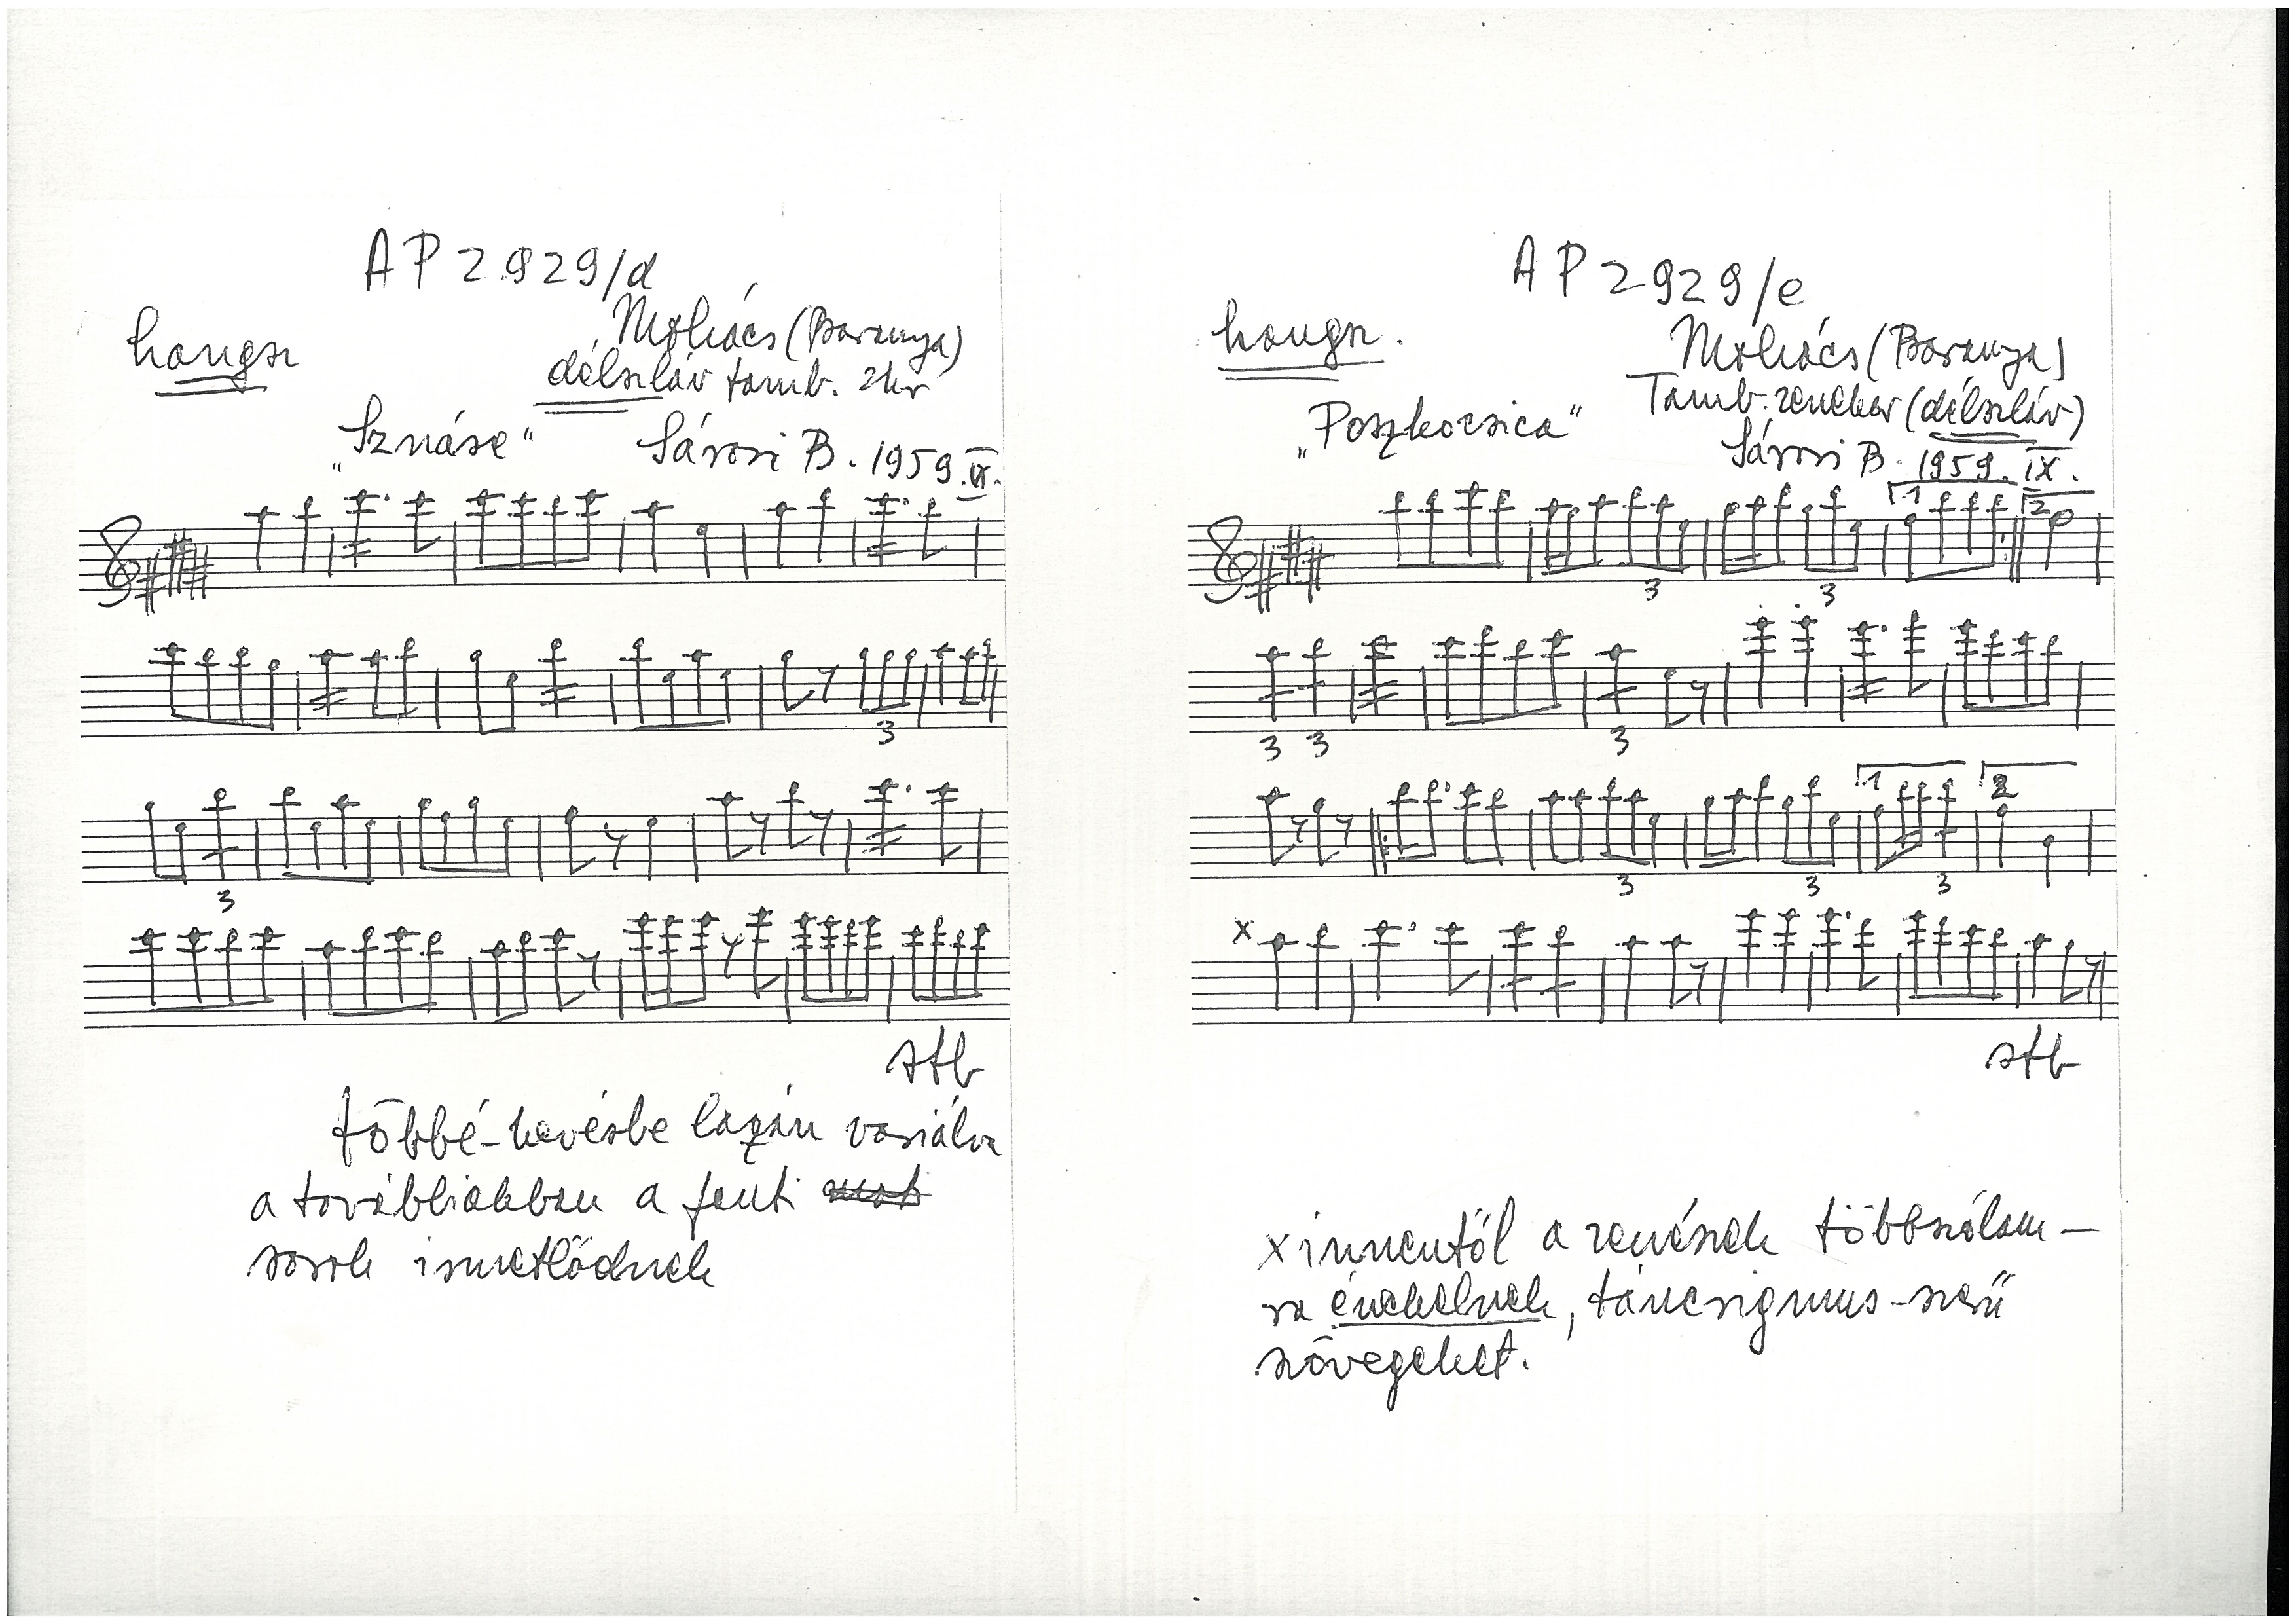 AP 2929/d
hangsz
Mohács (Baranya)
délszláv tamb. zkr
„Sznáse“ Sárosi B. 1959.IX.
3
3
stb
többé-kevésbe lazán variálva
a továbbiakban a fenti
sorok ismétlődnek
AP 2929/e
hangsz.
Mohács (Baranya)
Tamb. zenekar (délszláv)
„Poszkocsica“
Sárosi B. 1959. IX.
1 2
3 3
3 3 3
1 2
3 3 3
x
stb
x innentől a zenészek többszólam-
ra énekelnek, táncrigmus-szerű
szövegeket.